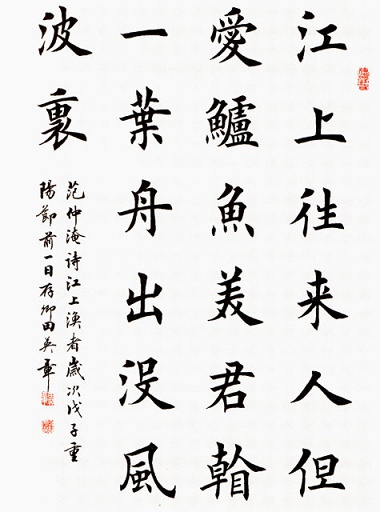 江上往来人但
愛鱸魚美君
一葉舟出没風
波裏
范仲淹詩江上漁者歲次戊子重
陽節前一日存卿田英章